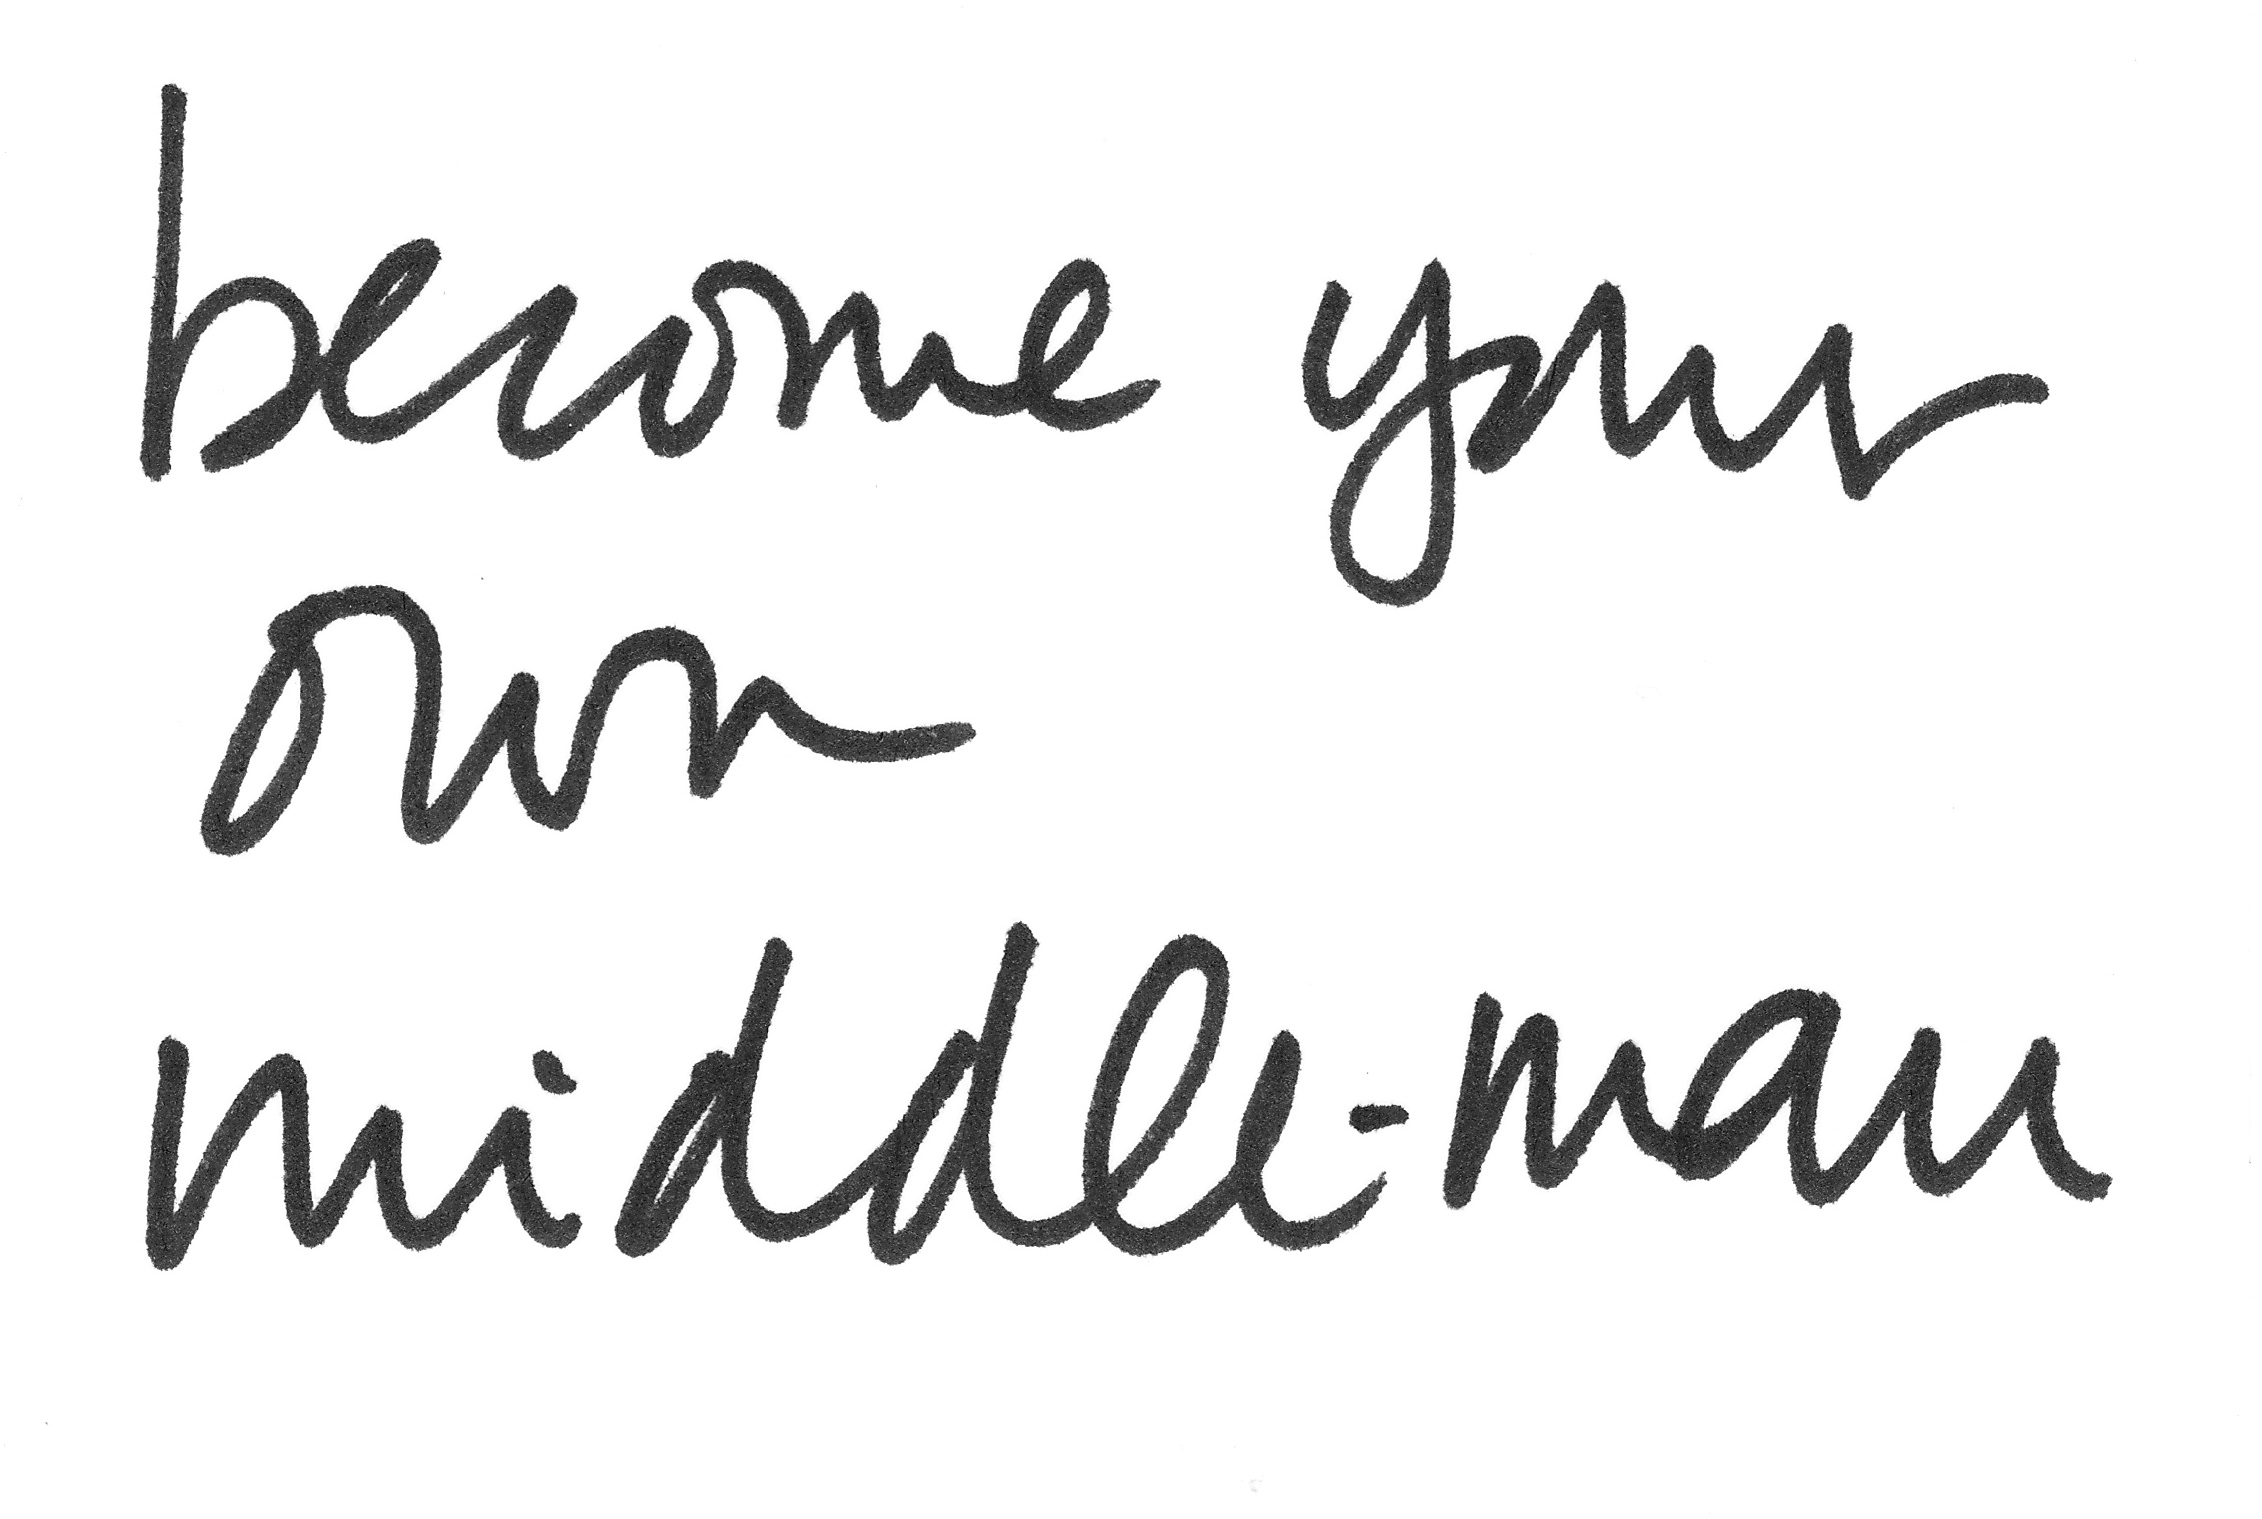 become your
own
middle-man